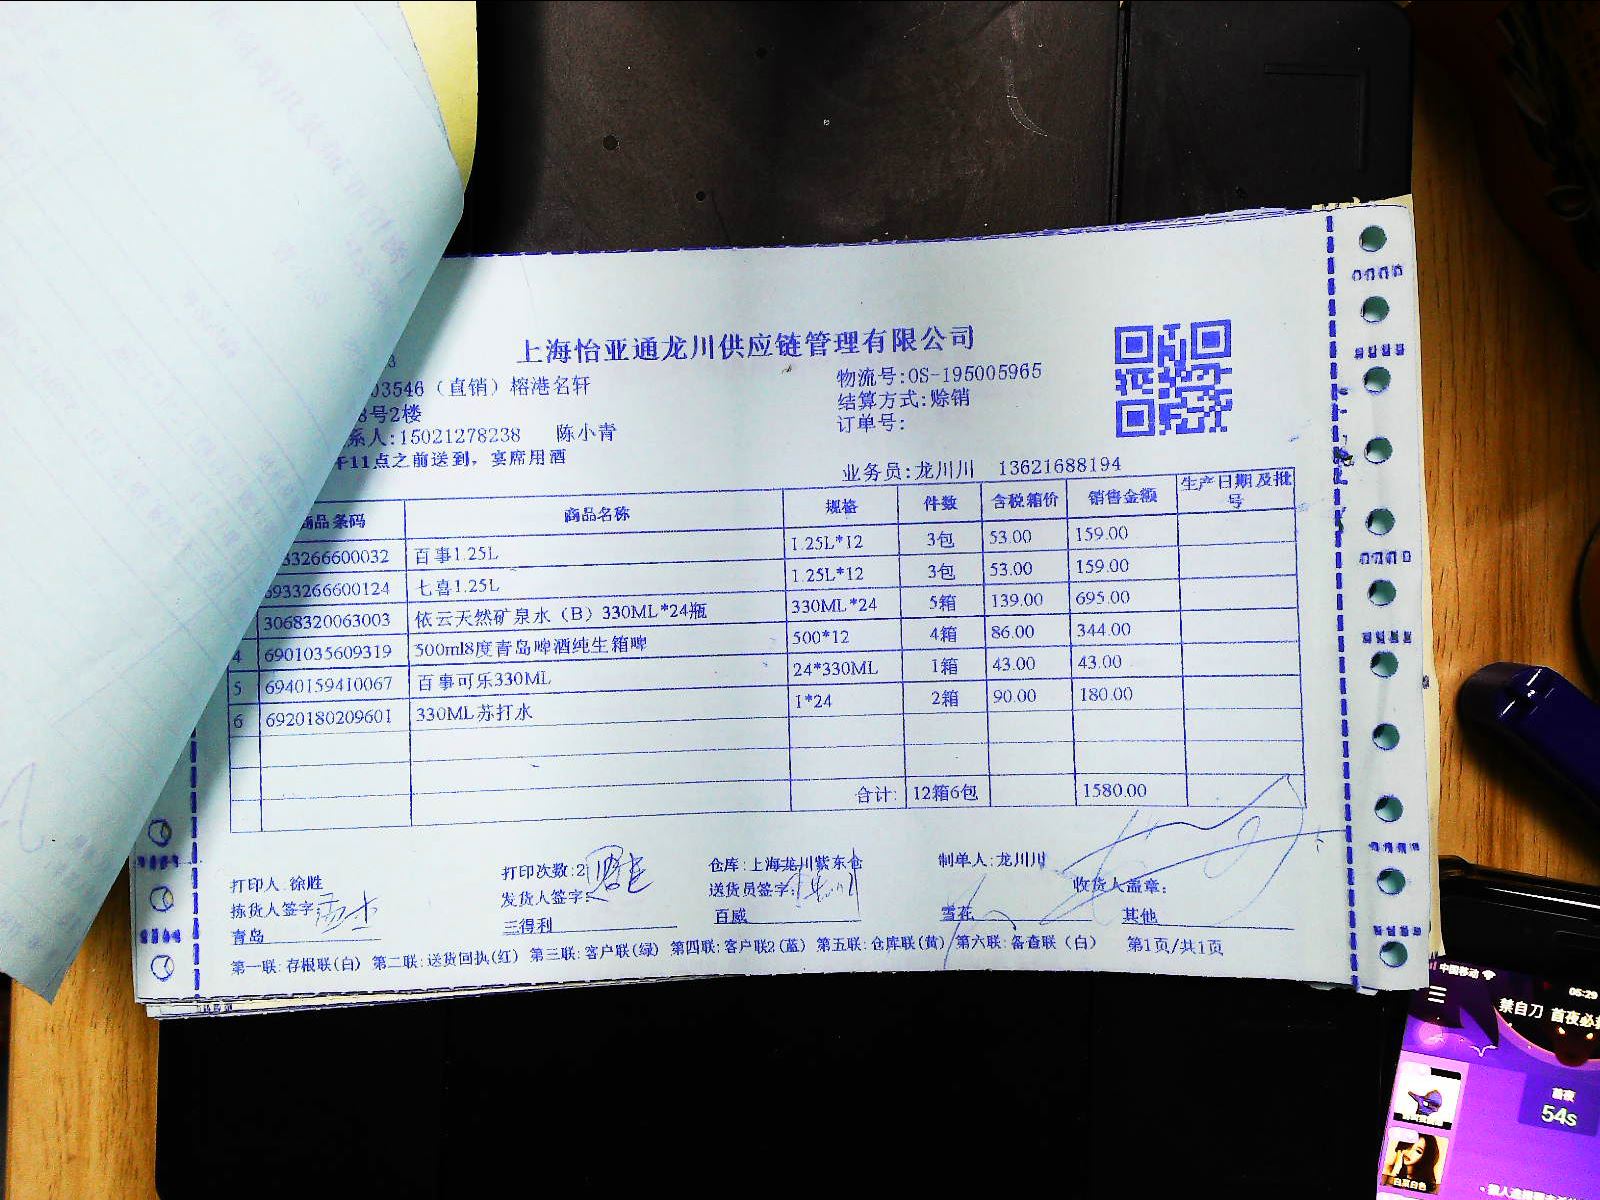 上海怡亚通龙川供应链管理有限公司
03546（直销）榕港名轩
物流号:OS-195005965
号2楼
结算方式:赊销
系人:15021278238 陈小青
订单号:
午11点之前送到，宴席用酒
业务员:龙川川 13621688194
商品条码 商品名称 规格 件数 含税箱价 销售金额 生产日期及批号
33266600032 百事1.25L 1.25L*12 3包 53.00 159.00
6933266600124 七喜1.25L 1.25L*12 3包 53.00 159.00
3068320063003 依云天然矿泉水（B）330ML*24瓶 330ML*24 5箱 139.00 695.00
4 6901035609319 500ml8度青岛啤酒纯生箱啤 500*12 4箱 86.00 344.00
5 6940159410067 百事可乐330ML 24*330ML 1箱 43.00 43.00
6 6920180209601 330ML苏打水 1*24 2箱 90.00 180.00
合计: 12箱6包 1580.00
打印人:徐胜 打印次数:2 仓库:上海龙川紫东仓 制单人:龙川川
拣货人签字: 发货人签字: 送货员签字: 收货人盖章:
青岛 三得利 百威 雪花 其他
第一联:存根联(白) 第二联:送货回执(红) 第三联:客户联(绿) 第四联:客户联2(蓝) 第五联:仓库联(黄) 第六联:备查联（白） 第1页/共1页
中国移动 05:29
禁自刀 首夜必
首夜
54s